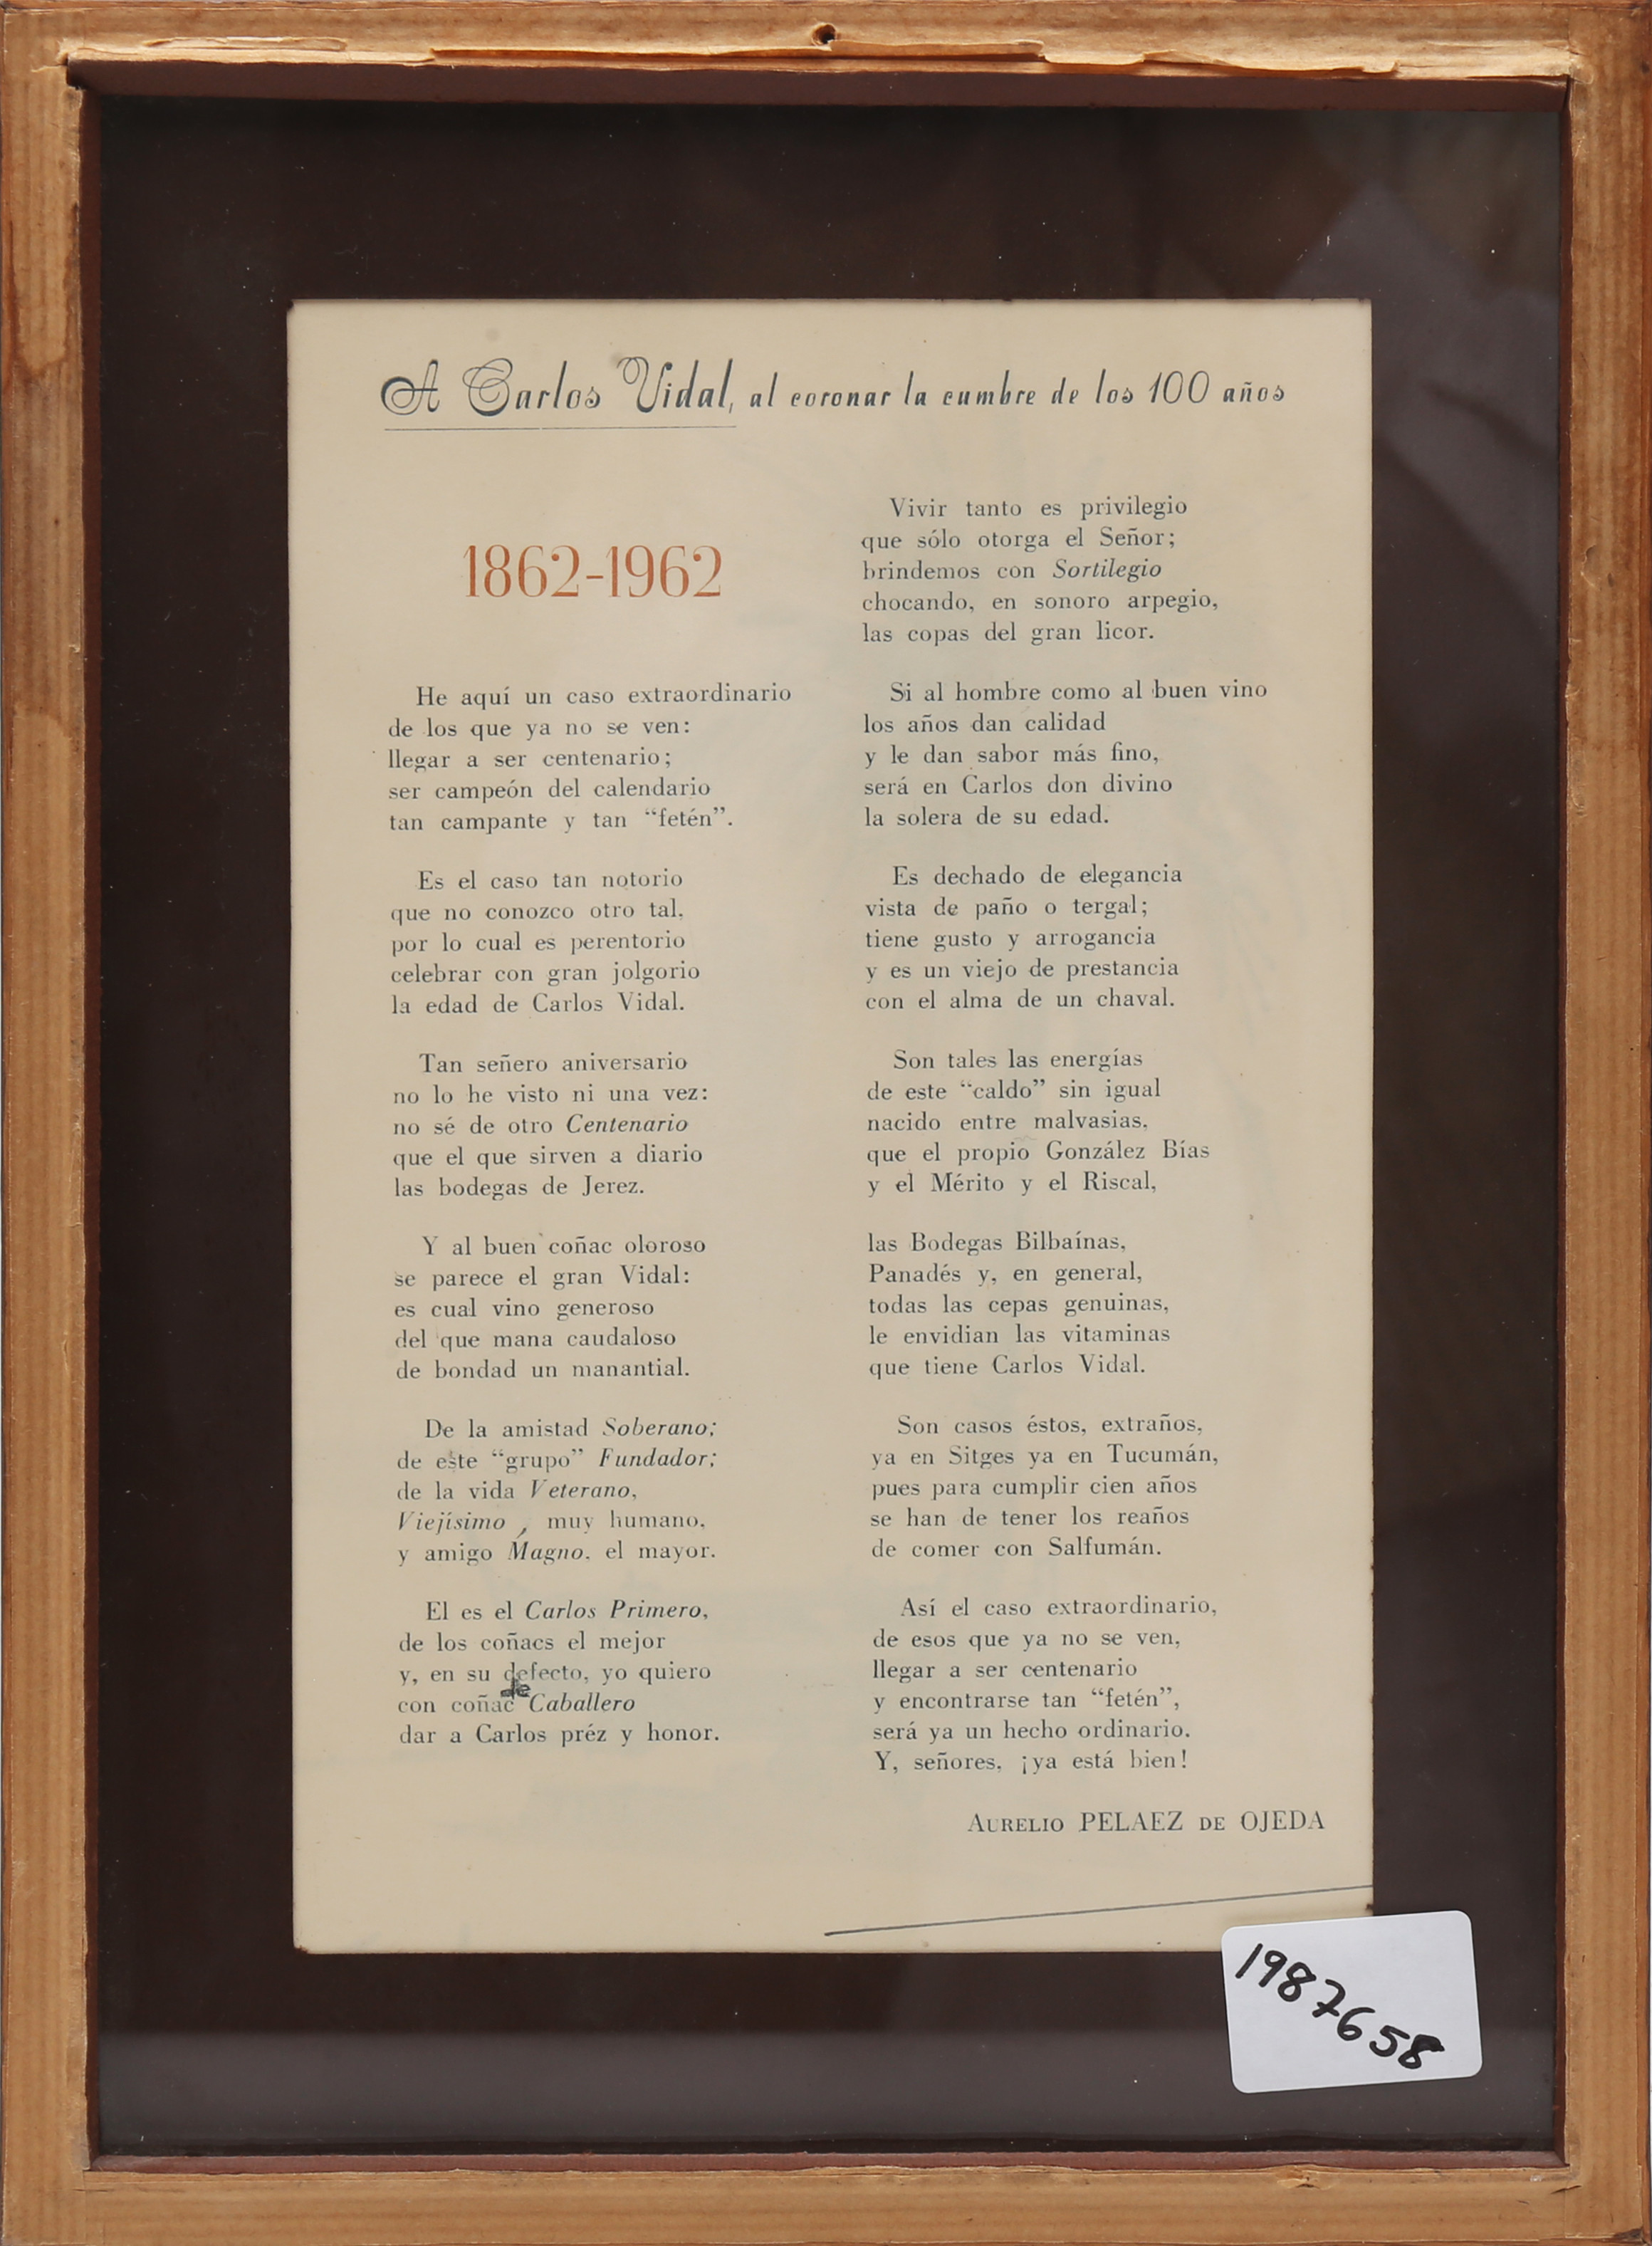 A Carlos Vidal, al coronar la cumbre de los 100 años
1862-1962
He aquí un caso extraordinario
de los que ya no se ven:
llegar a ser centenario;
ser campeón del calendario
tan campante y tan “fetén”.
Es el caso tan notorio
que no conozco otro tal,
por lo cual es perentorio
celebrar con gran jolgorio
la edad de Carlos Vidal.
Tan señero aniversario
no lo he visto ni una vez:
no sé de otro Centenario
que el que sirven a diario
las bodegas de Jerez.
Y al buen coñac oloroso
se parece el gran Vidal:
es cual vino generoso
del que mana caudaloso
de bondad un manantial.
De la amistad Soberano;
de este “grupo” Fundador;
de la vida Veterano,
Viejísimo , muy humano,
y amigo Magno. el mayor.
El es el Carlos Primero,
de los coñacs el mejor
y, en su defecto, yo quiero
con coñac de Caballero
dar a Carlos préz y honor.
Vivir tanto es privilegio
que sólo otorga el Señor;
brindemos con Sortilegio
chocando, en sonoro arpegio,
las copas del gran licor.
Si al hombre como al buen vino
los años dan calidad
y le dan sabor más fino,
será en Carlos don divino
la solera de su edad.
Es dechado de elegancia
vista de paño o tergal;
tiene gusto y arrogancia
y es un viejo de prestancia
con el alma de un chaval.
Son tales las energías
de este “caldo” sin igual
nacido entre malvasias,
que el propio González Bías
y el Mérito y el Riscal,
las Bodegas Bilbaínas,
Panadés y, en general,
todas las cepas genuinas,
le envidian las vitaminas
que tiene Carlos Vidal.
Son casos éstos, extraños,
ya en Sitges ya en Tucumán,
pues para cumplir cien años
se han de tener los reaños
de comer con Salfumán.
Así el caso extraordinario,
de esos que ya no se ven,
llegar a ser centenario
y encontrarse tan “fetén”,
será ya un hecho ordinario.
Y, señores, ¡ya está bien!
AURELIO PELAEZ DE OJEDA
1987658